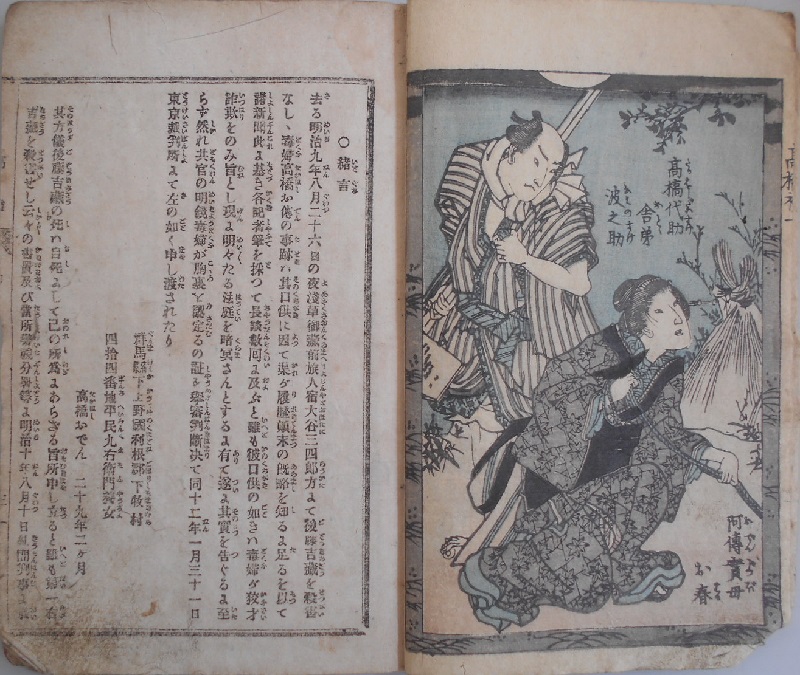 高橋代助
舎弟
波之助
阿傳實母
お春
○緒言
去る明治九年八月二十六日の夜淺草御藏前旅人宿大谷三四郎方にて後藤吉藏を殺害
なしゝ毒婦高橋お傳の事跡ハ其口供に因て粗々履歴顛末の概略を知るに足るを以て
諸新聞此に基き各記者筆を採つて長談數回に及ぶと雖も彼口供の如きハ毒婦が狡才
詐欺をのみ旨とし現に明々たる法庭を暗冥さんとするに有て遂に其實を告ぐるに至
らず然れ共官の明鏡毒婦が胸裏を認定るの証を擧審判斷决て同十二年一月三十一日
東京裁判所にて左の如く申し渡されたり
群馬縣下上野國利根郡下牧村
四拾四番地平民九右衛門養女
高橋おでん 二十九年二ケ月
其方儀後藤吉藏の死ハ自死にして己の所爲にあらざる旨申し立ると雖も第一右
吉藏を殺害せし云々の書置及び當所警視分署等に明治十年八月十日糺問判事